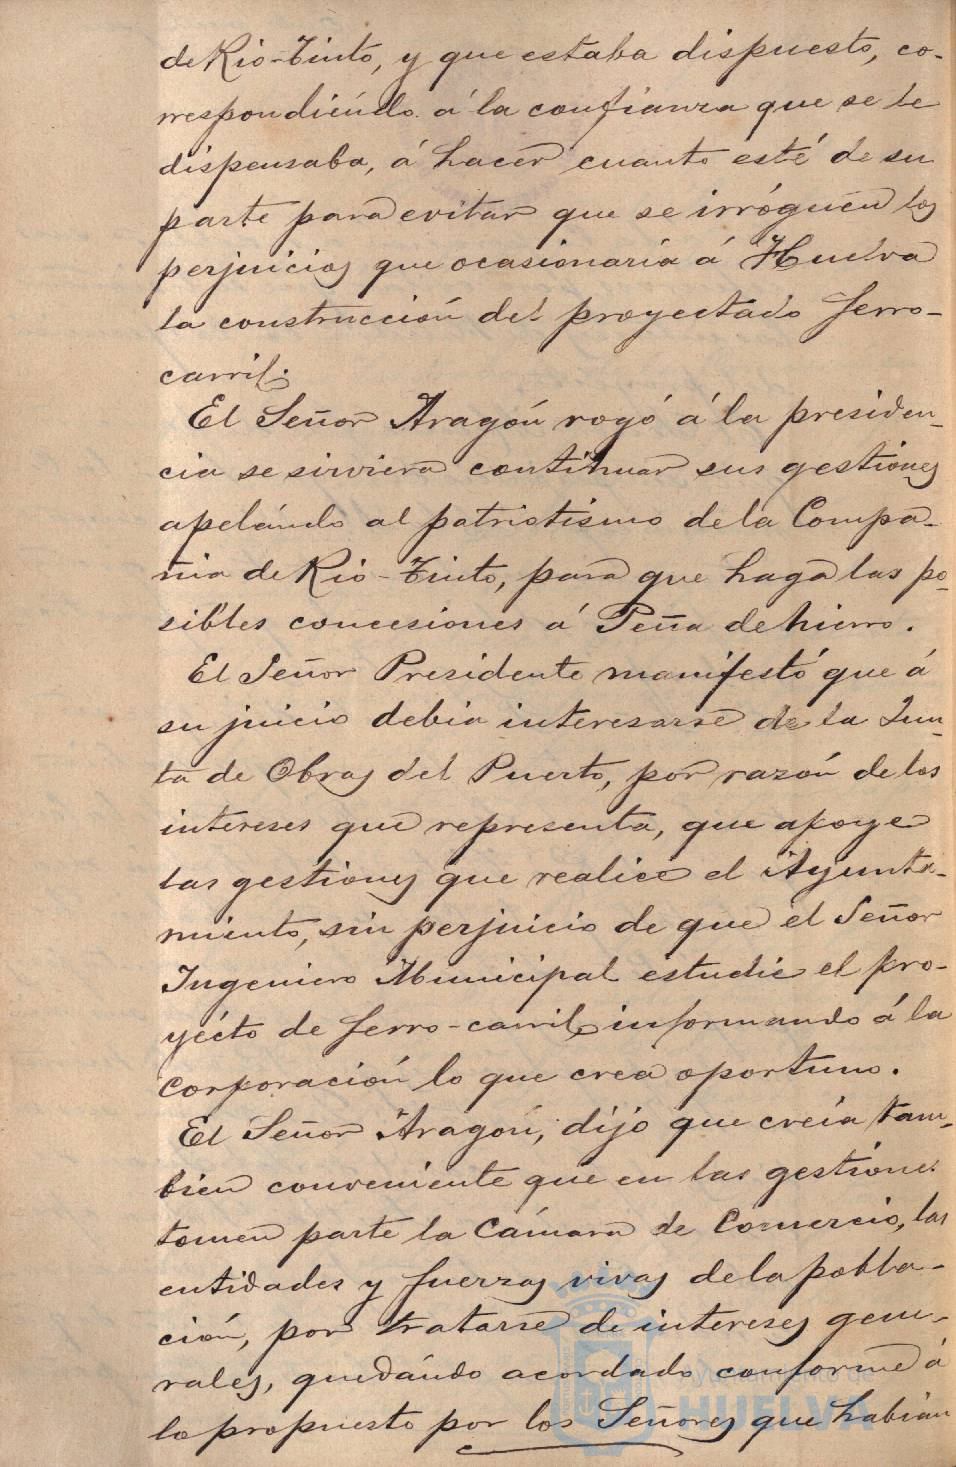 de Rio-Tinto, y que estaba dispuesto, co-
rrespondiéndo á la confianza que se le
dispensaba, á hacer cuanto esté de su
parte para evitar que se irróguen los
perjuicios que ocasionaria á Huelva
la construcción del proyectado ferro-
carril.
El Señor Aragón rogó á la presiden-
cia se sirviera continuar sus gestiones
apelándo al patriotismo de la Compa-
ñia de Rio-Tinto, para que haga las po-
sibles concesiones á Peña de hierro.
El Señor Presidente manifestó que á
su juicio debia interesarse de la Jun-
ta de Obras del Puerto, por razón de los
intereses que representa, que apoye
las gestiones que realice el Ayunta-
miento, sin perjuicio de que el Señor
Ingeniero Municipal estudie el pro-
yécto de ferro-carril, informando á la
Corporación lo que crea oportuno.
El Señor Aragón, dijo que creía tam-
bien conveniente que en las gestiones
tomen parte la Cámara de Comercio, las
entidades y fuerzas vivas de la pobla-
ción, por tratarse de intereses gene-
rales, quedándo acordado conforme á
lo propuesto por los Señores que habían
Ayuntamiento de
HUELVA